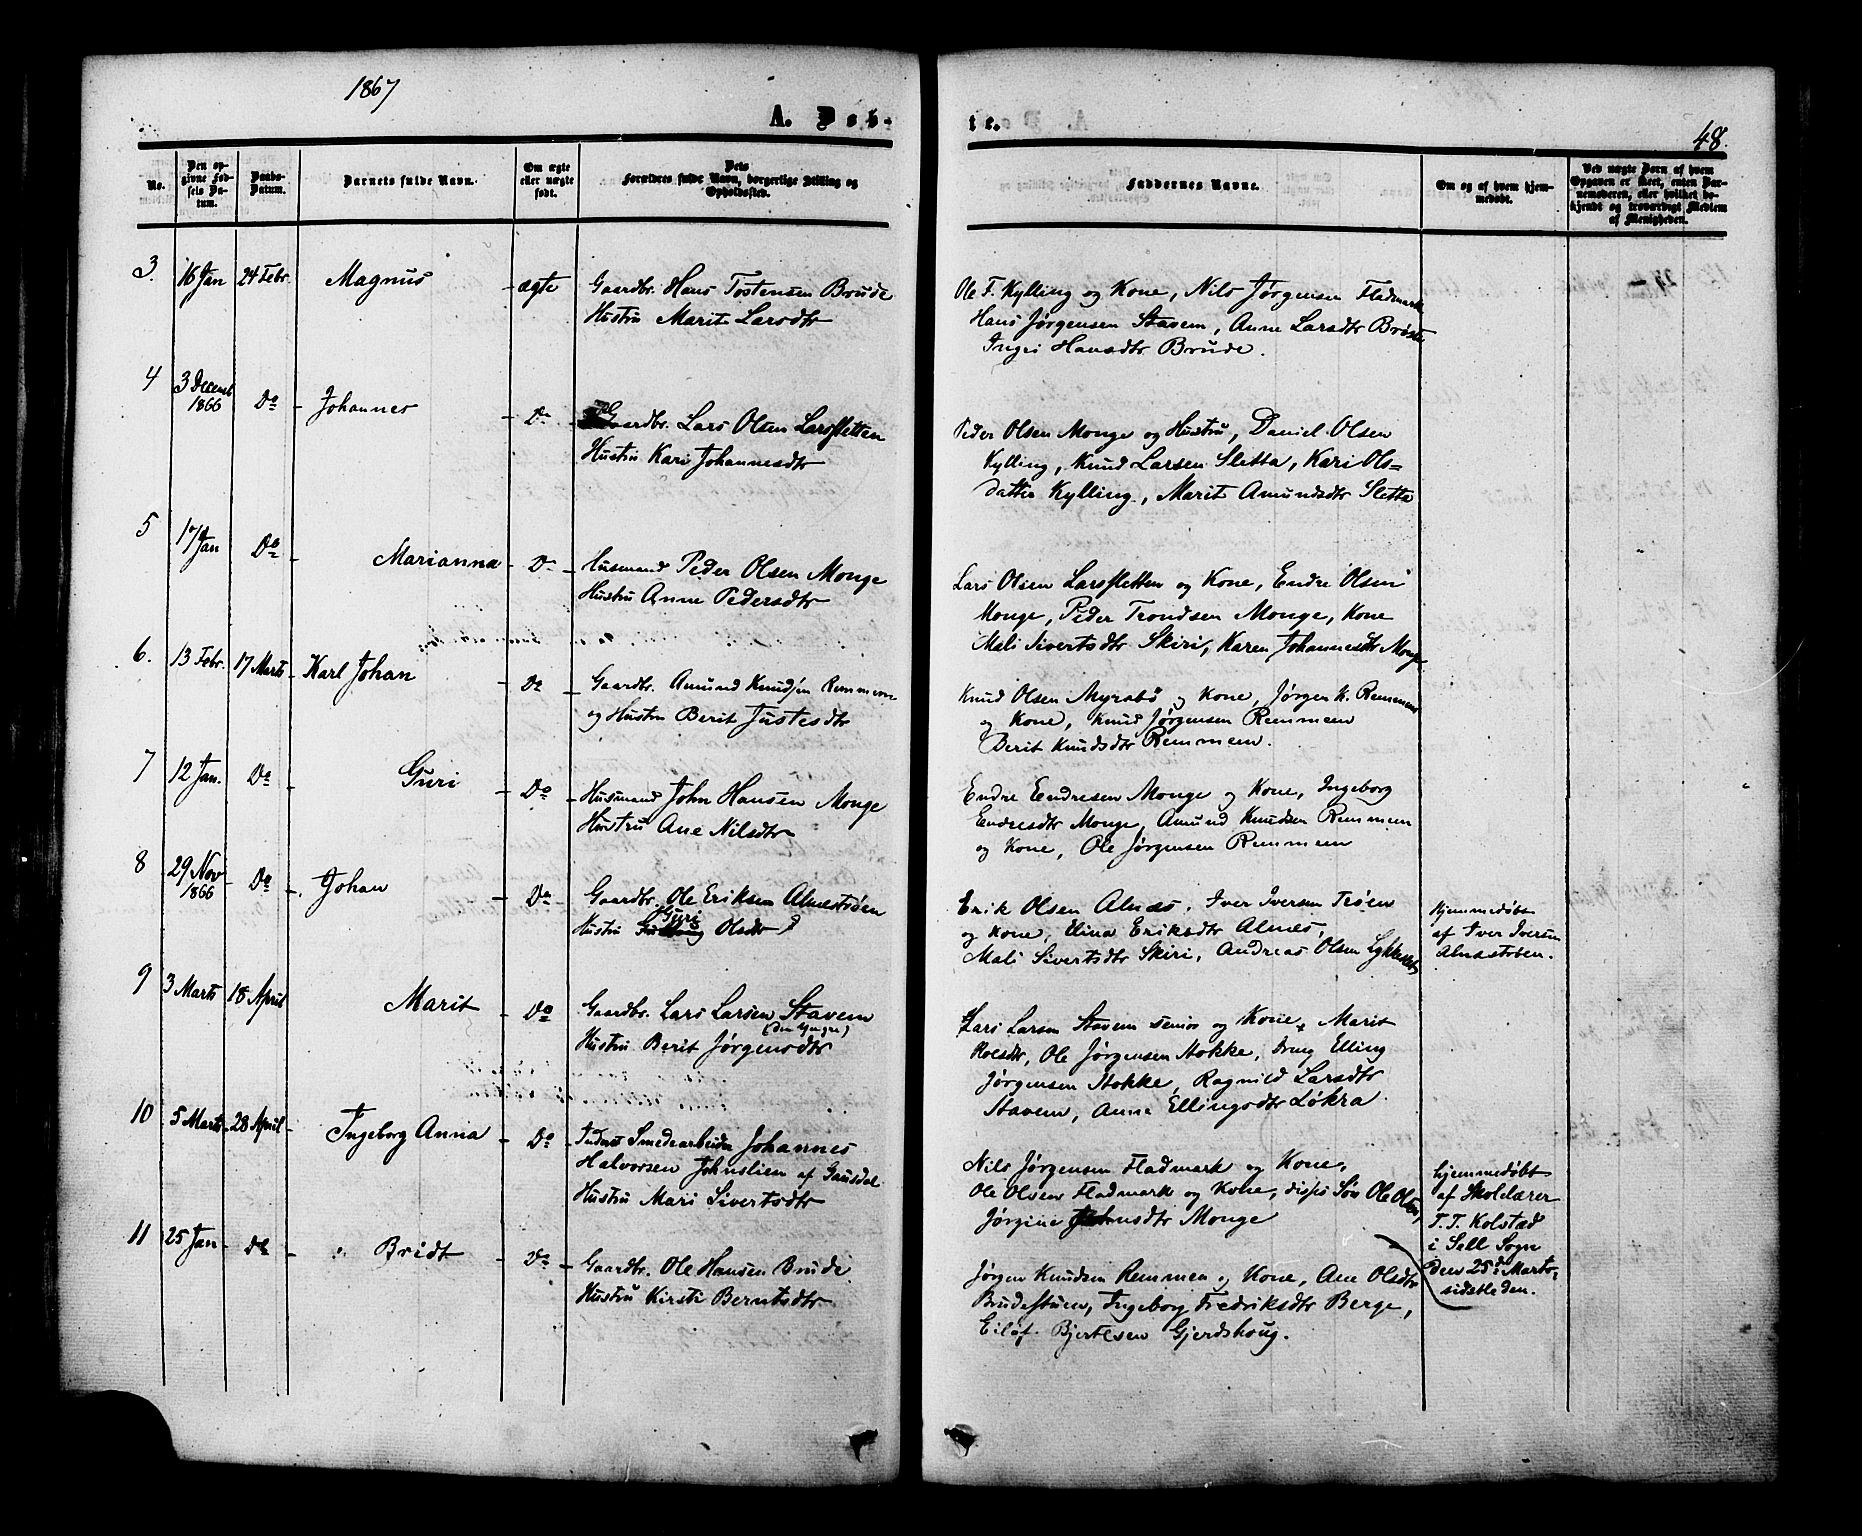 1867
A. Døb-
te.
48.
No.
Den op-
givne Fød-
sels Da-
tum.
Daabs-
Datum.
Barnets fulde Navn.
Om ægte
eller uægte
født.
Dets
Forældres fulde Navn, borgerlige Stilling og
Opholdssted.
Faddernes Navne.
Om og af hvem hjem-
medøbt.
Ved uægte Børn af hvem
Opgaven er skeet, enten Bar-
nemoderen, eller hvilket be-
kjendt og troværdigt Medlem
af Menigheden.
3. 16 Jan 24 Febr. Magnus ægte
Gaardbr. Hans Tostensen Brude
Hustru Marit Larsdtr
Ole F. Kylling og Kone, Nils Jørgensen Fladmark
Hans Jørgensen Stavem, Anne Larsdtr Brøste
Inger Hansdtr Brude.
4 3 Decemb 1866 Do Johannes Do
Gaardbr. Lars Olsen Larssletten
Hustru Kari Johannesdtr
Peder Olsen Monge og Hustru, Daniel Olsen
Kylling, Knud Larsen Sletta, Kari Ols-
datter Kylling, Marit Amundsdtr Sletta
5 17 Jan Do Marianna Do
Husmand Peder Olsen Monge
Hustru Anne Pedersdtr
Lars Olsen Larssletten og Kone, Endre Olsen
Monge, Peder Trondsen Monge, Kone
Mali Sivertsdtr Skiri, Karen Johannesdtr Monge
6. 13 Febr. 17 Marts Karl Johan Do
Gaardbr. Amund Knudsen Remmem
og Hustru Berit Justesdtr
Knud Olsen Myrabø og Kone, Jørgen K. Remmem
og Kone, Knud Jørgensen Remmem
Berit Knudsdtr Remmem.
7 12 Jan. Do Guri Do
Husmand John Hansen Monge
Hustru Ane Nilsdtr
Endre Endresen Monge og Kone, Ingeborg
Endresdtr Monge, Amund Knudsen Remmem
og Kone, Ole Jørgensen Remmem
8 29 Nov 1866 Do Johan Do
Gaardbr. Ole Eriksen Alnestrøen
Hustru Guri Olsdtr
Erik Olsen Alnæs, Iver Iversen Trøen
og Kone, Elina Eriksdtr Alnes,
Mali Sivertsdtr Skiri, Andreas Olsen
Hjemmedøbt
af Iver Iversen
Alnæstrøen.
9 3 Marts 18 April Marit Do
Gaardbr. Lars Larsen Stavem
(den yngre)
Hustru Berit Jørgensdtr
Lars Larsen Stavem senior og Kone, Marit
Ole Jørgensen Stokke, Elling
Jørgensen Stokke, Ragnild Larsdtr
Stavem, Anne Ellingsdtr Løkra.
10 5 Marts 28 April Ingeborg Anna Do
Smedearbeider Johannes
Halvorsen Johnslien af Gausdal
Hustru Mari Sivertsdtr
Nils Jørgensen Fladmark og Kone,
Ole Olsen Fladmark og Kone, disses Søn Ole Olsen,
Jørgine Johnsdtr Monge
hjemmedøbt
af Skolelærer
T. T. Kolstad
i Sell Sogn
den 25d Marts
sidstleden.
11 25 Jan Do Bridt Do
Gaardbr. Ole Hansen Brude
Hustru Kirsti Berntsdtr
Jørgen Knudsen Remmen og Kone, Ane Olsdtr
Brudestuen, Ingeborg Fredriksdtr Berge,
Eilef Bjertesen Gjerdshoug.